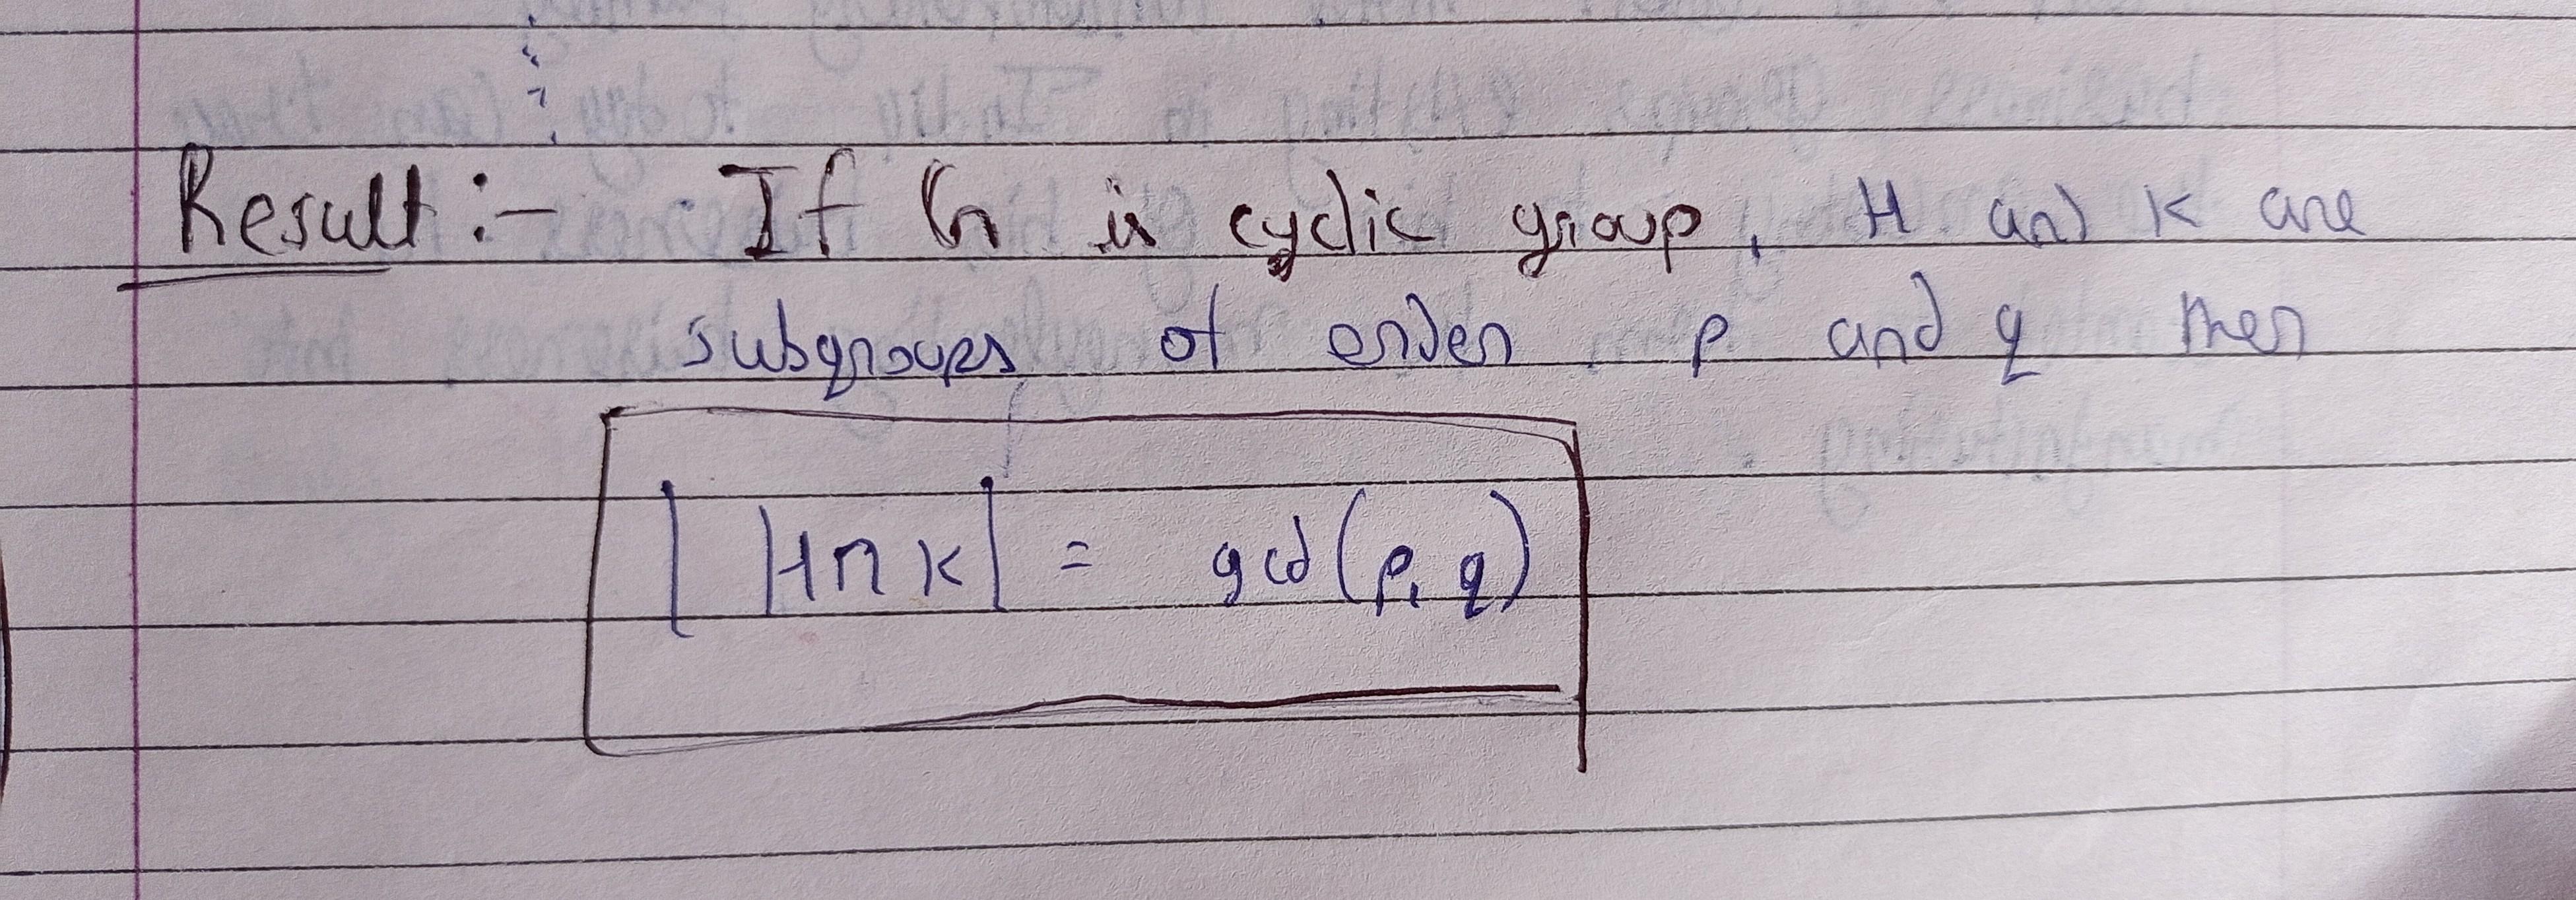 Result :- If G is cyclic group, H and K are
subgroups of order p and q then
| H ∩ K | = gcd(p, q)